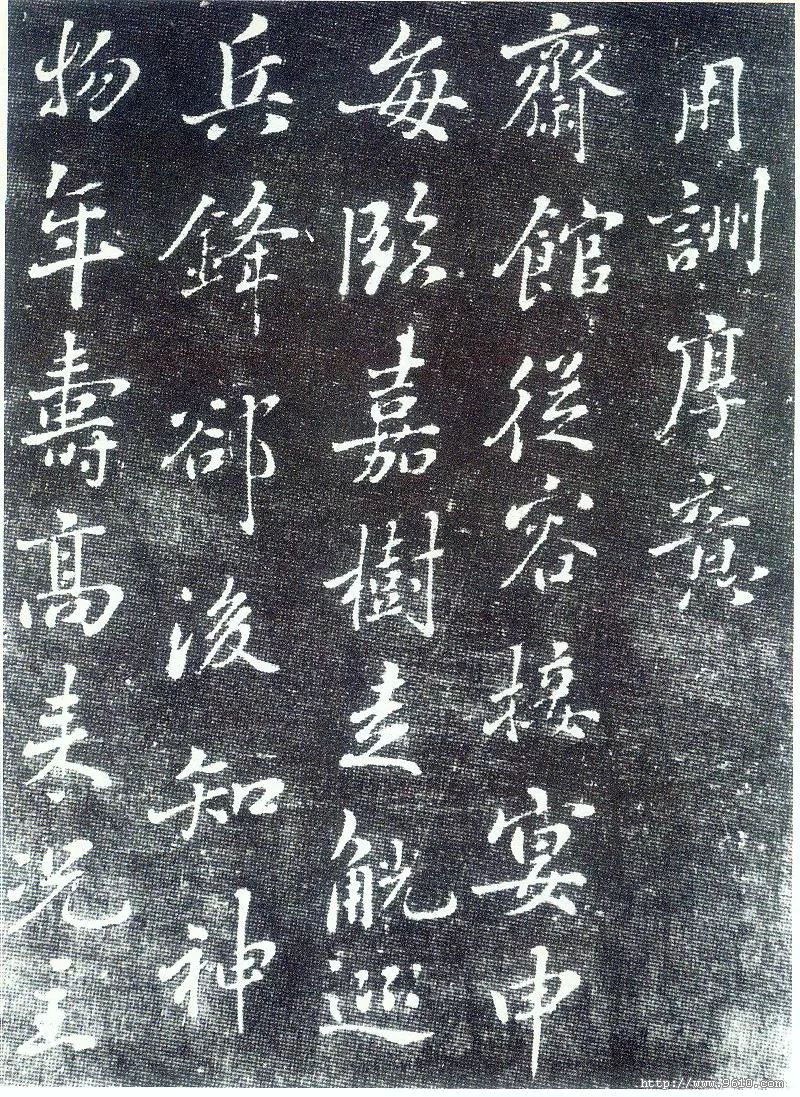 用詶厚意
齋館從容接宴申
每臨嘉樹走觥巡
兵鋒郤後知神
物年壽高來況主
http://www.9610.com